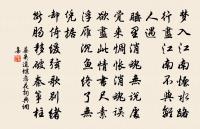 梦入江南烟水路
行尽江南与离
人遇睡里消魂无说处
觉来惆怅消魂误
欲尽此情书尺素
浮雁沉鱼终了无
凭据
却倚缓弦歌别绪
断肠移破秦筝柱